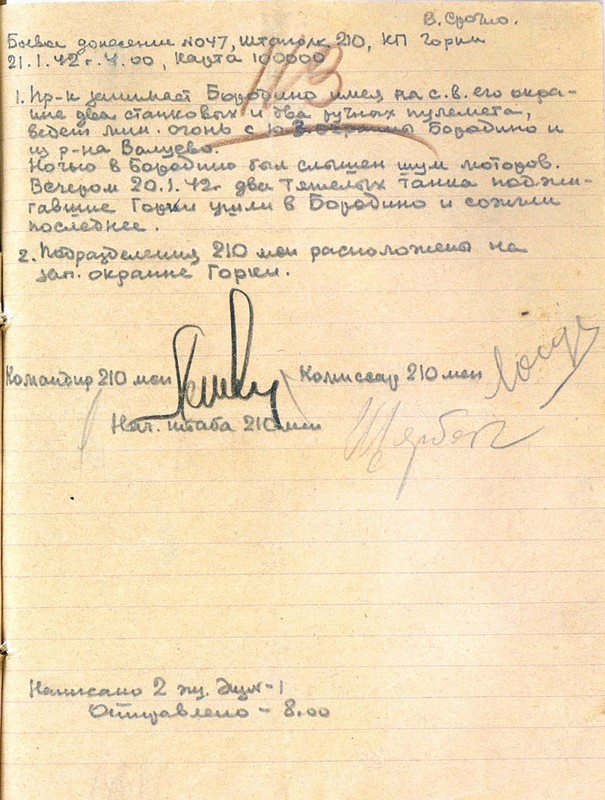 В. Срочно.
Боевое донесение №047, Штаполк 210, КП Горки
21.1.42 г. 4.00, Карта 100000
113
1. Пр-к занимает Бородино имея на с.в. его окра-
ине два станковых и два ручных пулемета,
ведет мин. огонь с ю.з. окраины Бородино и
из р-на Валуево.
Ночью в Бородино был слышен шум моторов.
Вечером 20.1.42г. два тяжелых танка поджи-
гавшие Горки ушли в Бородино и сожгли
последнее.
2. Подразделения 210 мсп расположены на
зап. окраине Горки.
Командир 210 мсп Комиссар 210 мсп
Нач. штаба 210 мсп
Написано 2 экз. Экз№-1
Отправлено - 8.00